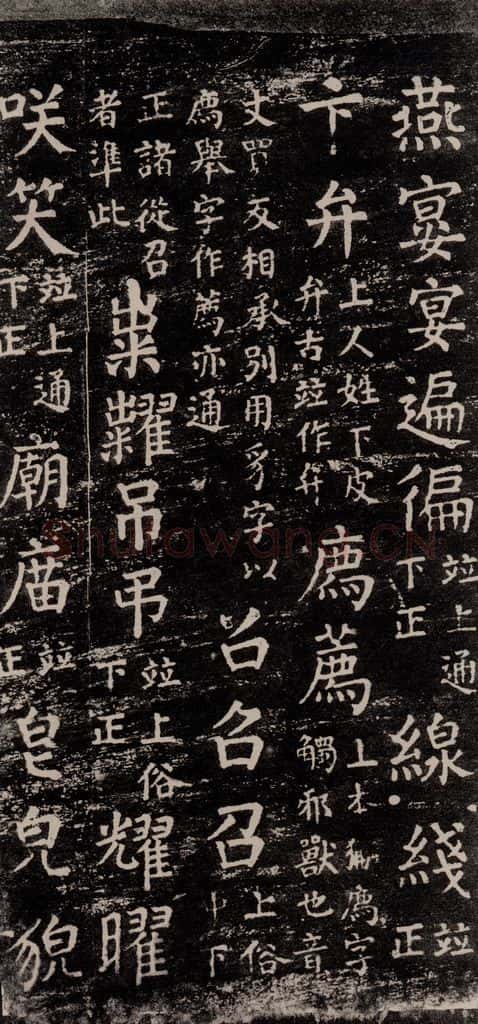 燕宴宴遍徧並上通下正線綫並正
卞弁上人姓下皮弁古並作弁廌薦上本獬廌字觸邪獸也音
丈買反相承別用豸字以廌舉字作薦亦通召召上俗中下
正諸從召者準此粜糶吊弔並上俗下正耀曜
咲笑並上通下正廟庿並正皃貌
shufawang.CN